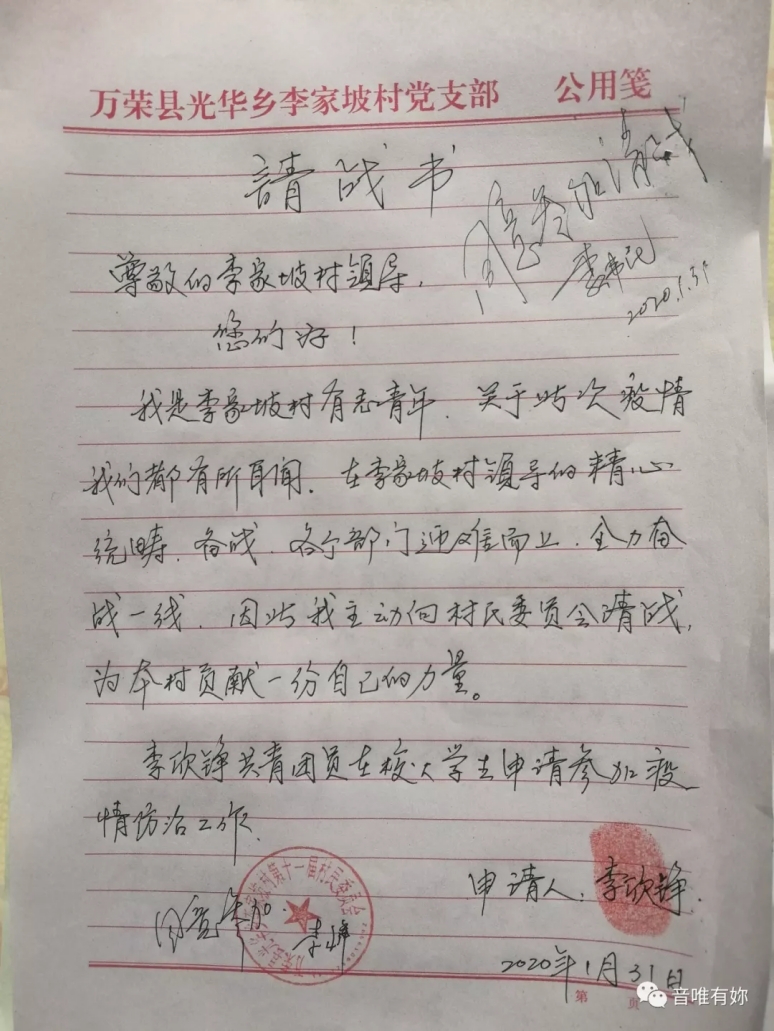 万荣县光华乡李家坡村党支部 公用笺
請战书
同意参加请战
2020.1.31
尊敬的李家坡村領导,
您的好!
我是李家坡村有志青年.关于此次疫情
我们都有所耳闻.在李家坡村領导的精心
统畴.备战.各个部门迎难而上.全力奋
战一线.因此我主动向村民委员会請战,
为本村贡献一份自己的力量。
李欣铮共青团员在校大学生申请参加疫
情防治工作.
申请人:李欣铮.
同意参加.
李峰
第十一届村民委员会
2020年1月31日
第 页
音唯有妳